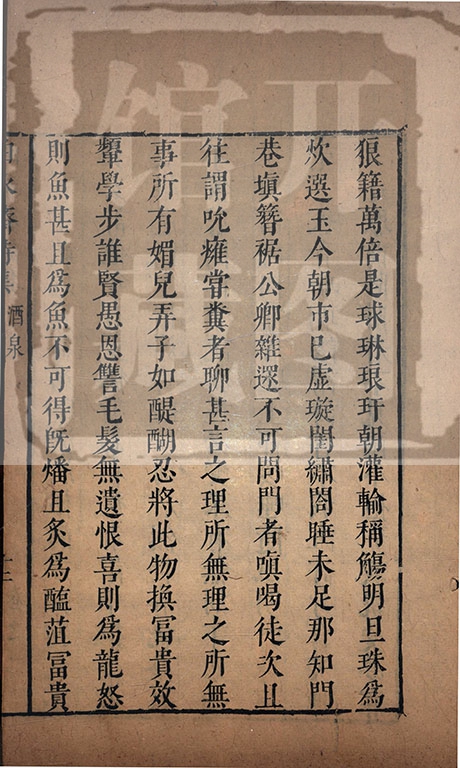 狼籍萬倍是球琳琅玕朝灌輸稱觴明旦珠為
炊選玉今朝市巳虛璇閨繡閤睡未足那知門
巷塡簪裾公卿雜遝不可問門者嗔喝徒次且
往謂吮癰甞糞者聊甚言之理所無理之所無
事所有媚兒弄子如醍醐忍將此物換冨貴效
顰學步誰賢愚恩讐毛髮無遺恨喜則為龍怒
則魚甚且為魚不可得旣燔且炙為醢菹冨貴
酒泉